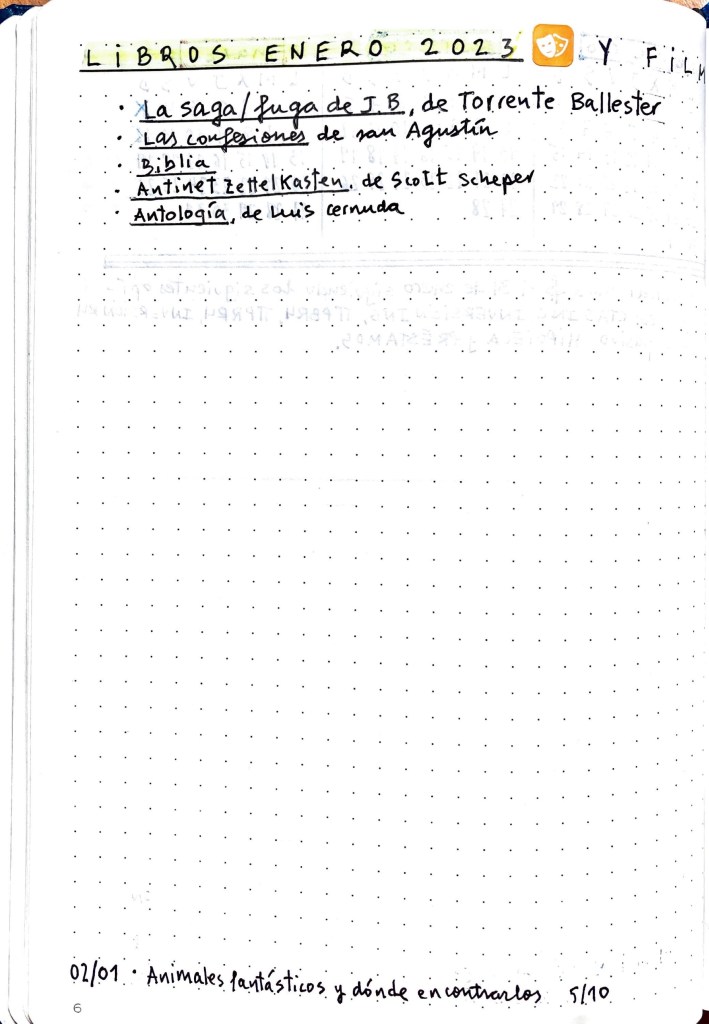 LIBROS ENERO 2023 Y FILM
· La saga/fuga de J.B, de Torrente Ballester
· Las confesiones de san Agustín
· Biblia
· Antinet Zettelkasten, de Scott Scheper
· Antología, de Luis Cernuda
02/01 · Animales fantásticos y dónde encontrarlos 5/10
6